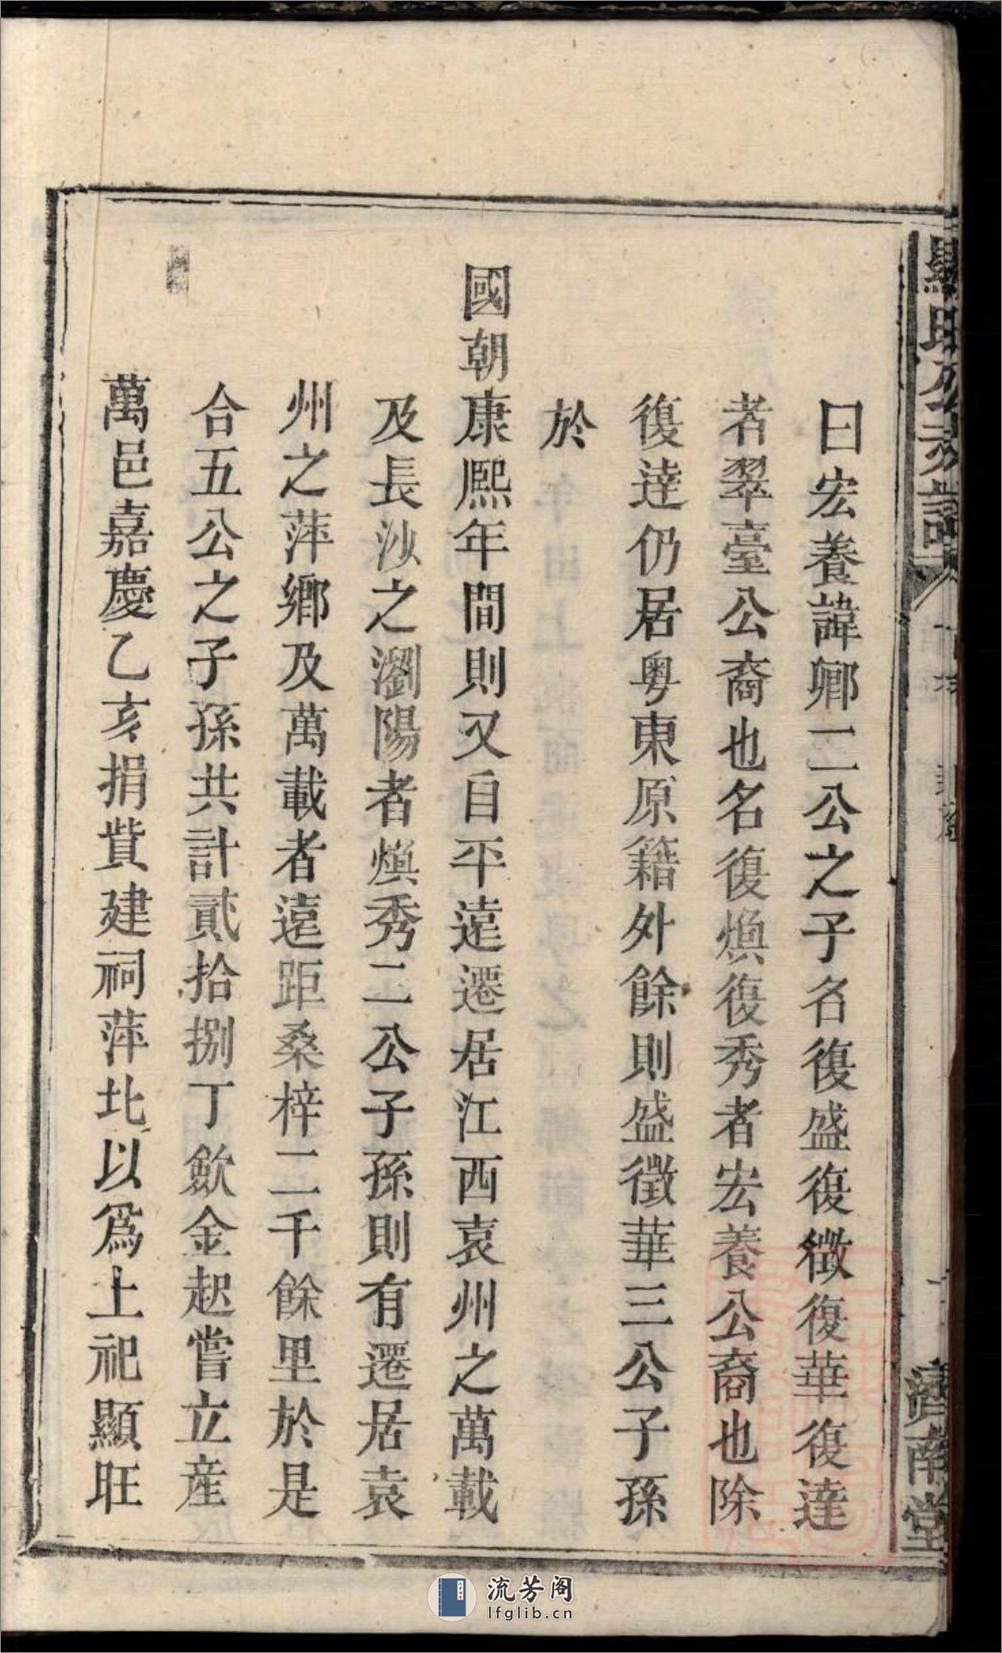 曰宏養諱卿二公之子名復盛復徵復華復達
者翠臺公裔也名復煥復秀者宏養公裔也除
復達仍居粤東原籍外餘則盛徵華三公子孫
於
國朝康熙年間則又自平遠遷居江西袁州之萬載
及長沙之瀏陽者煥秀二公子孫則有遷居袁
州之萍鄉及萬載者遠距桑梓二千餘里於是
合五公之子孫共計貳拾捌丁歛金起嘗立産
萬邑嘉慶乙亥捐貲建祠萍北以爲上祀顯旺
濟南堂
流芳阁
lfglib.cn